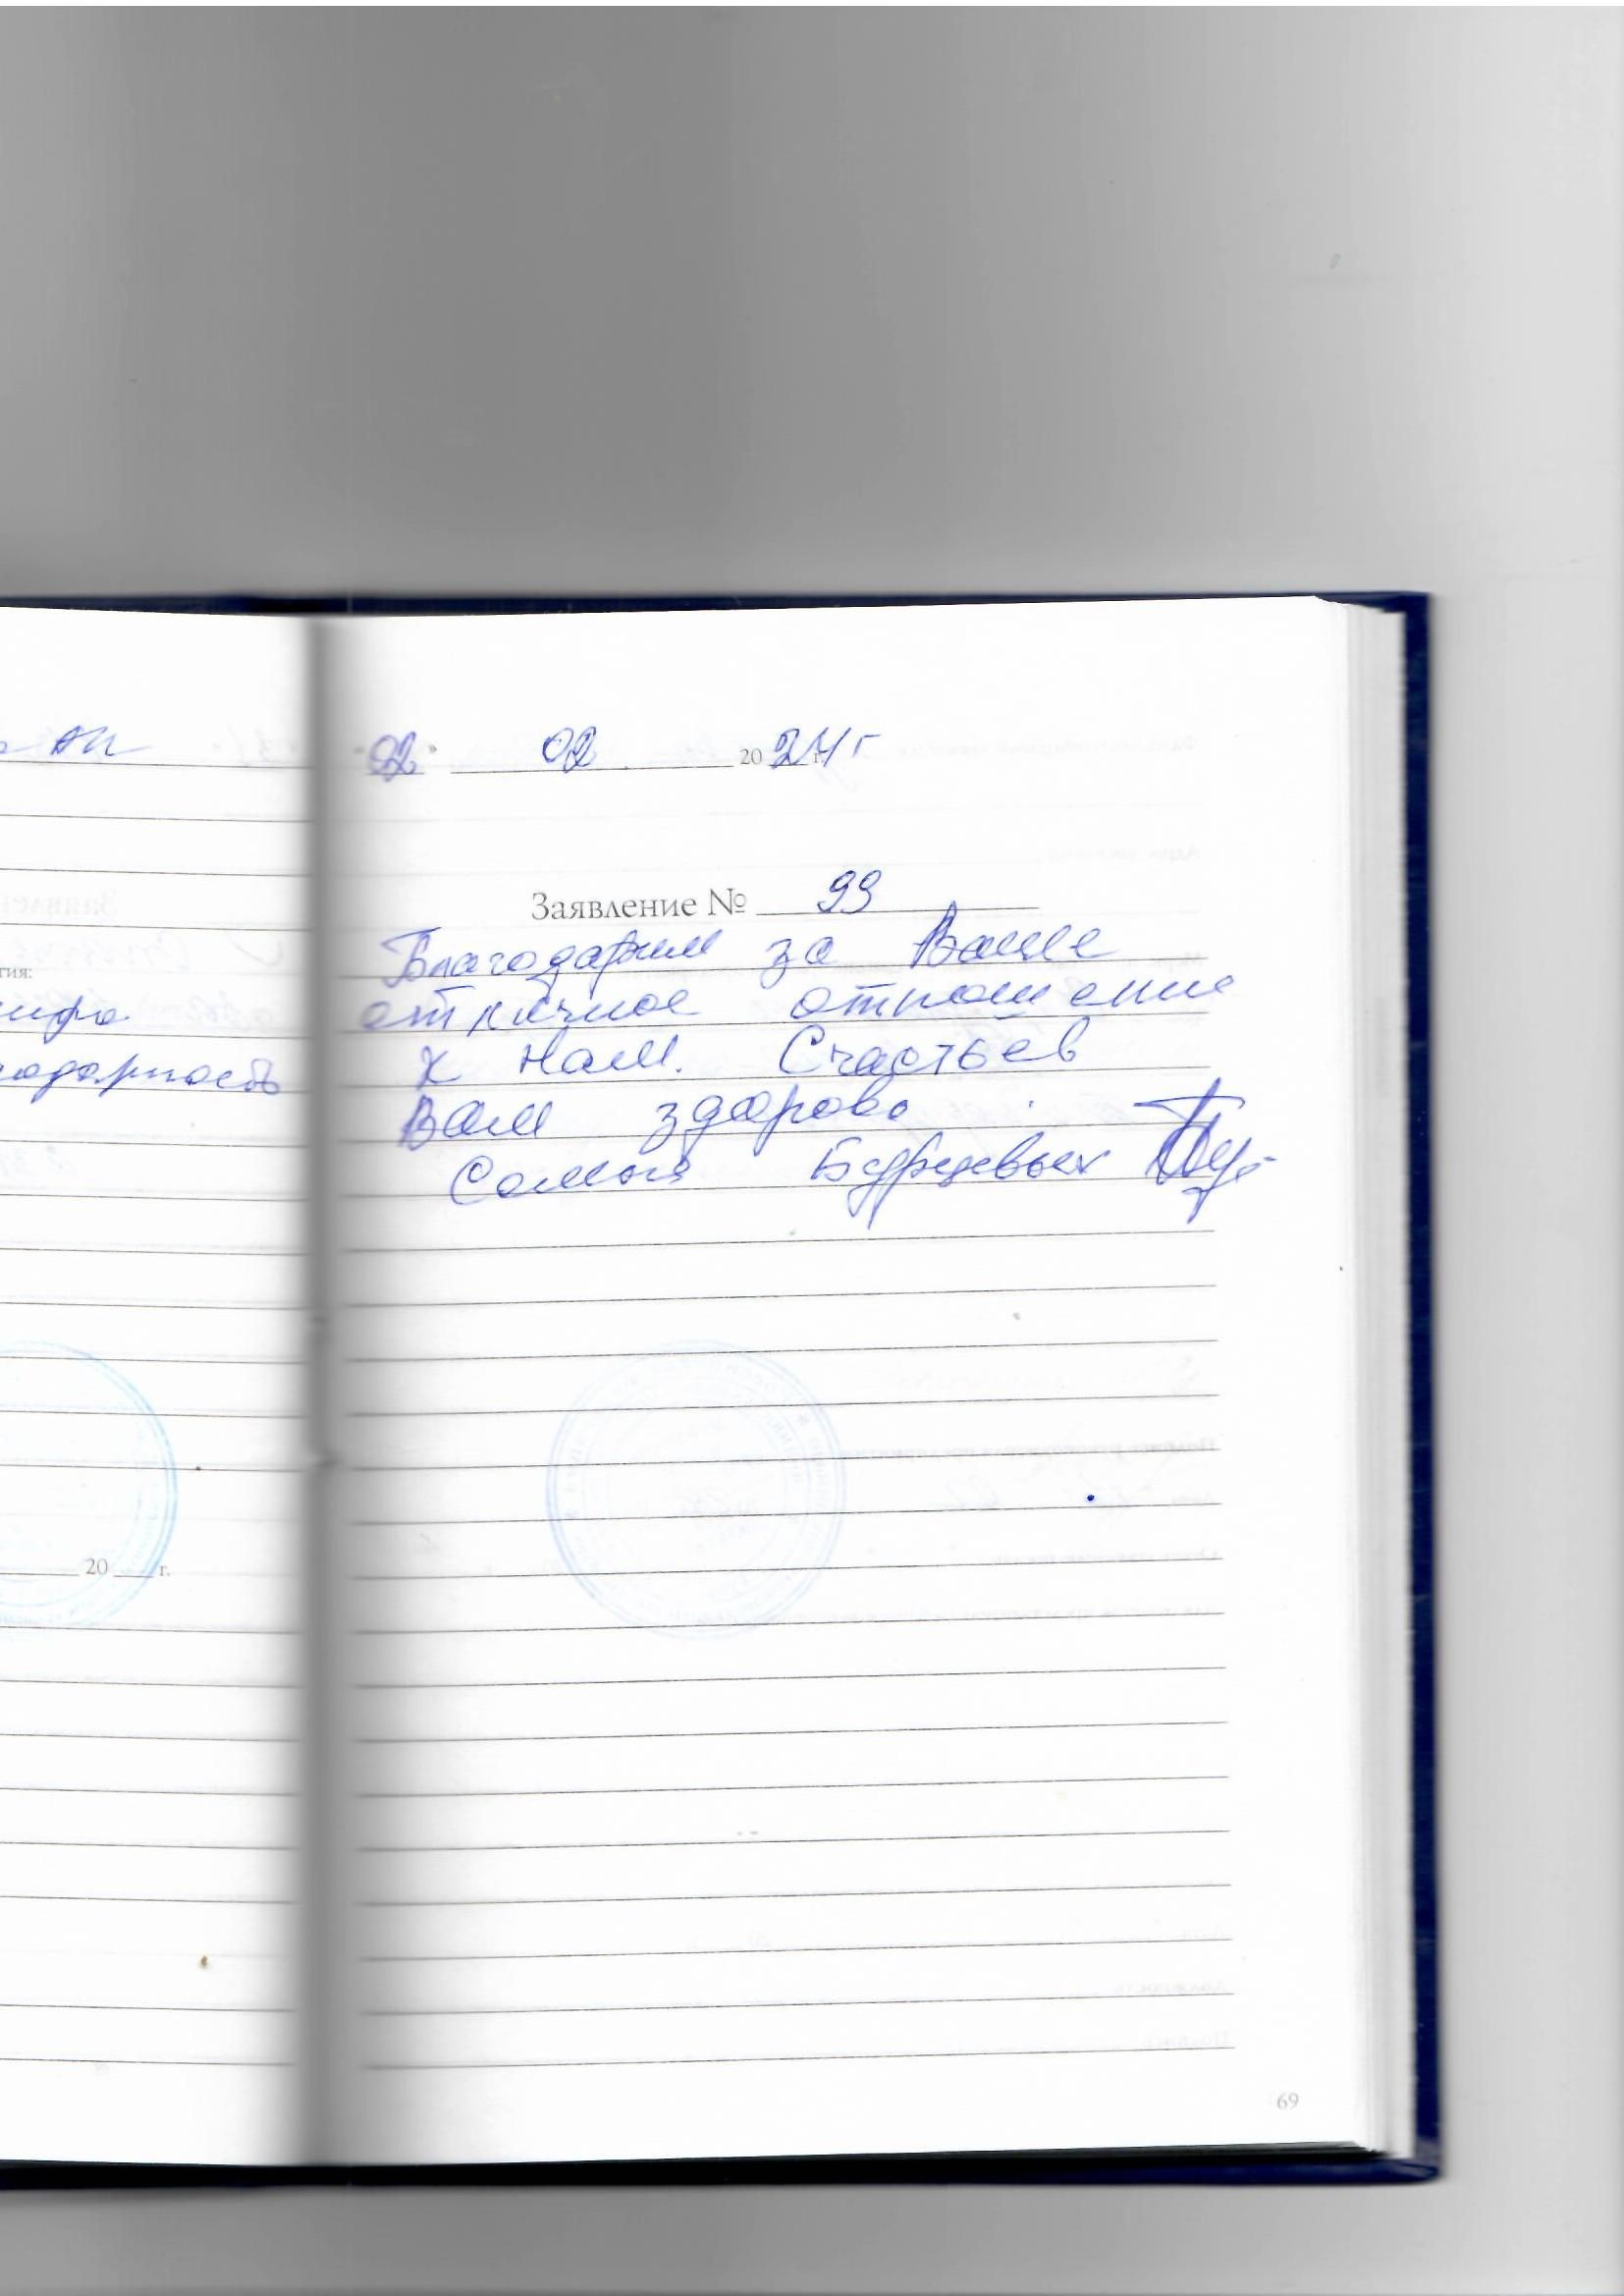 АП
гия:
нифа
одарность
20 г.
"02" 02 2024 г
Заявление № 99
Благодарим за Ваше
отличное отношение
к нам. Счастьев
Вам здорово
Семья Бурцевых
69